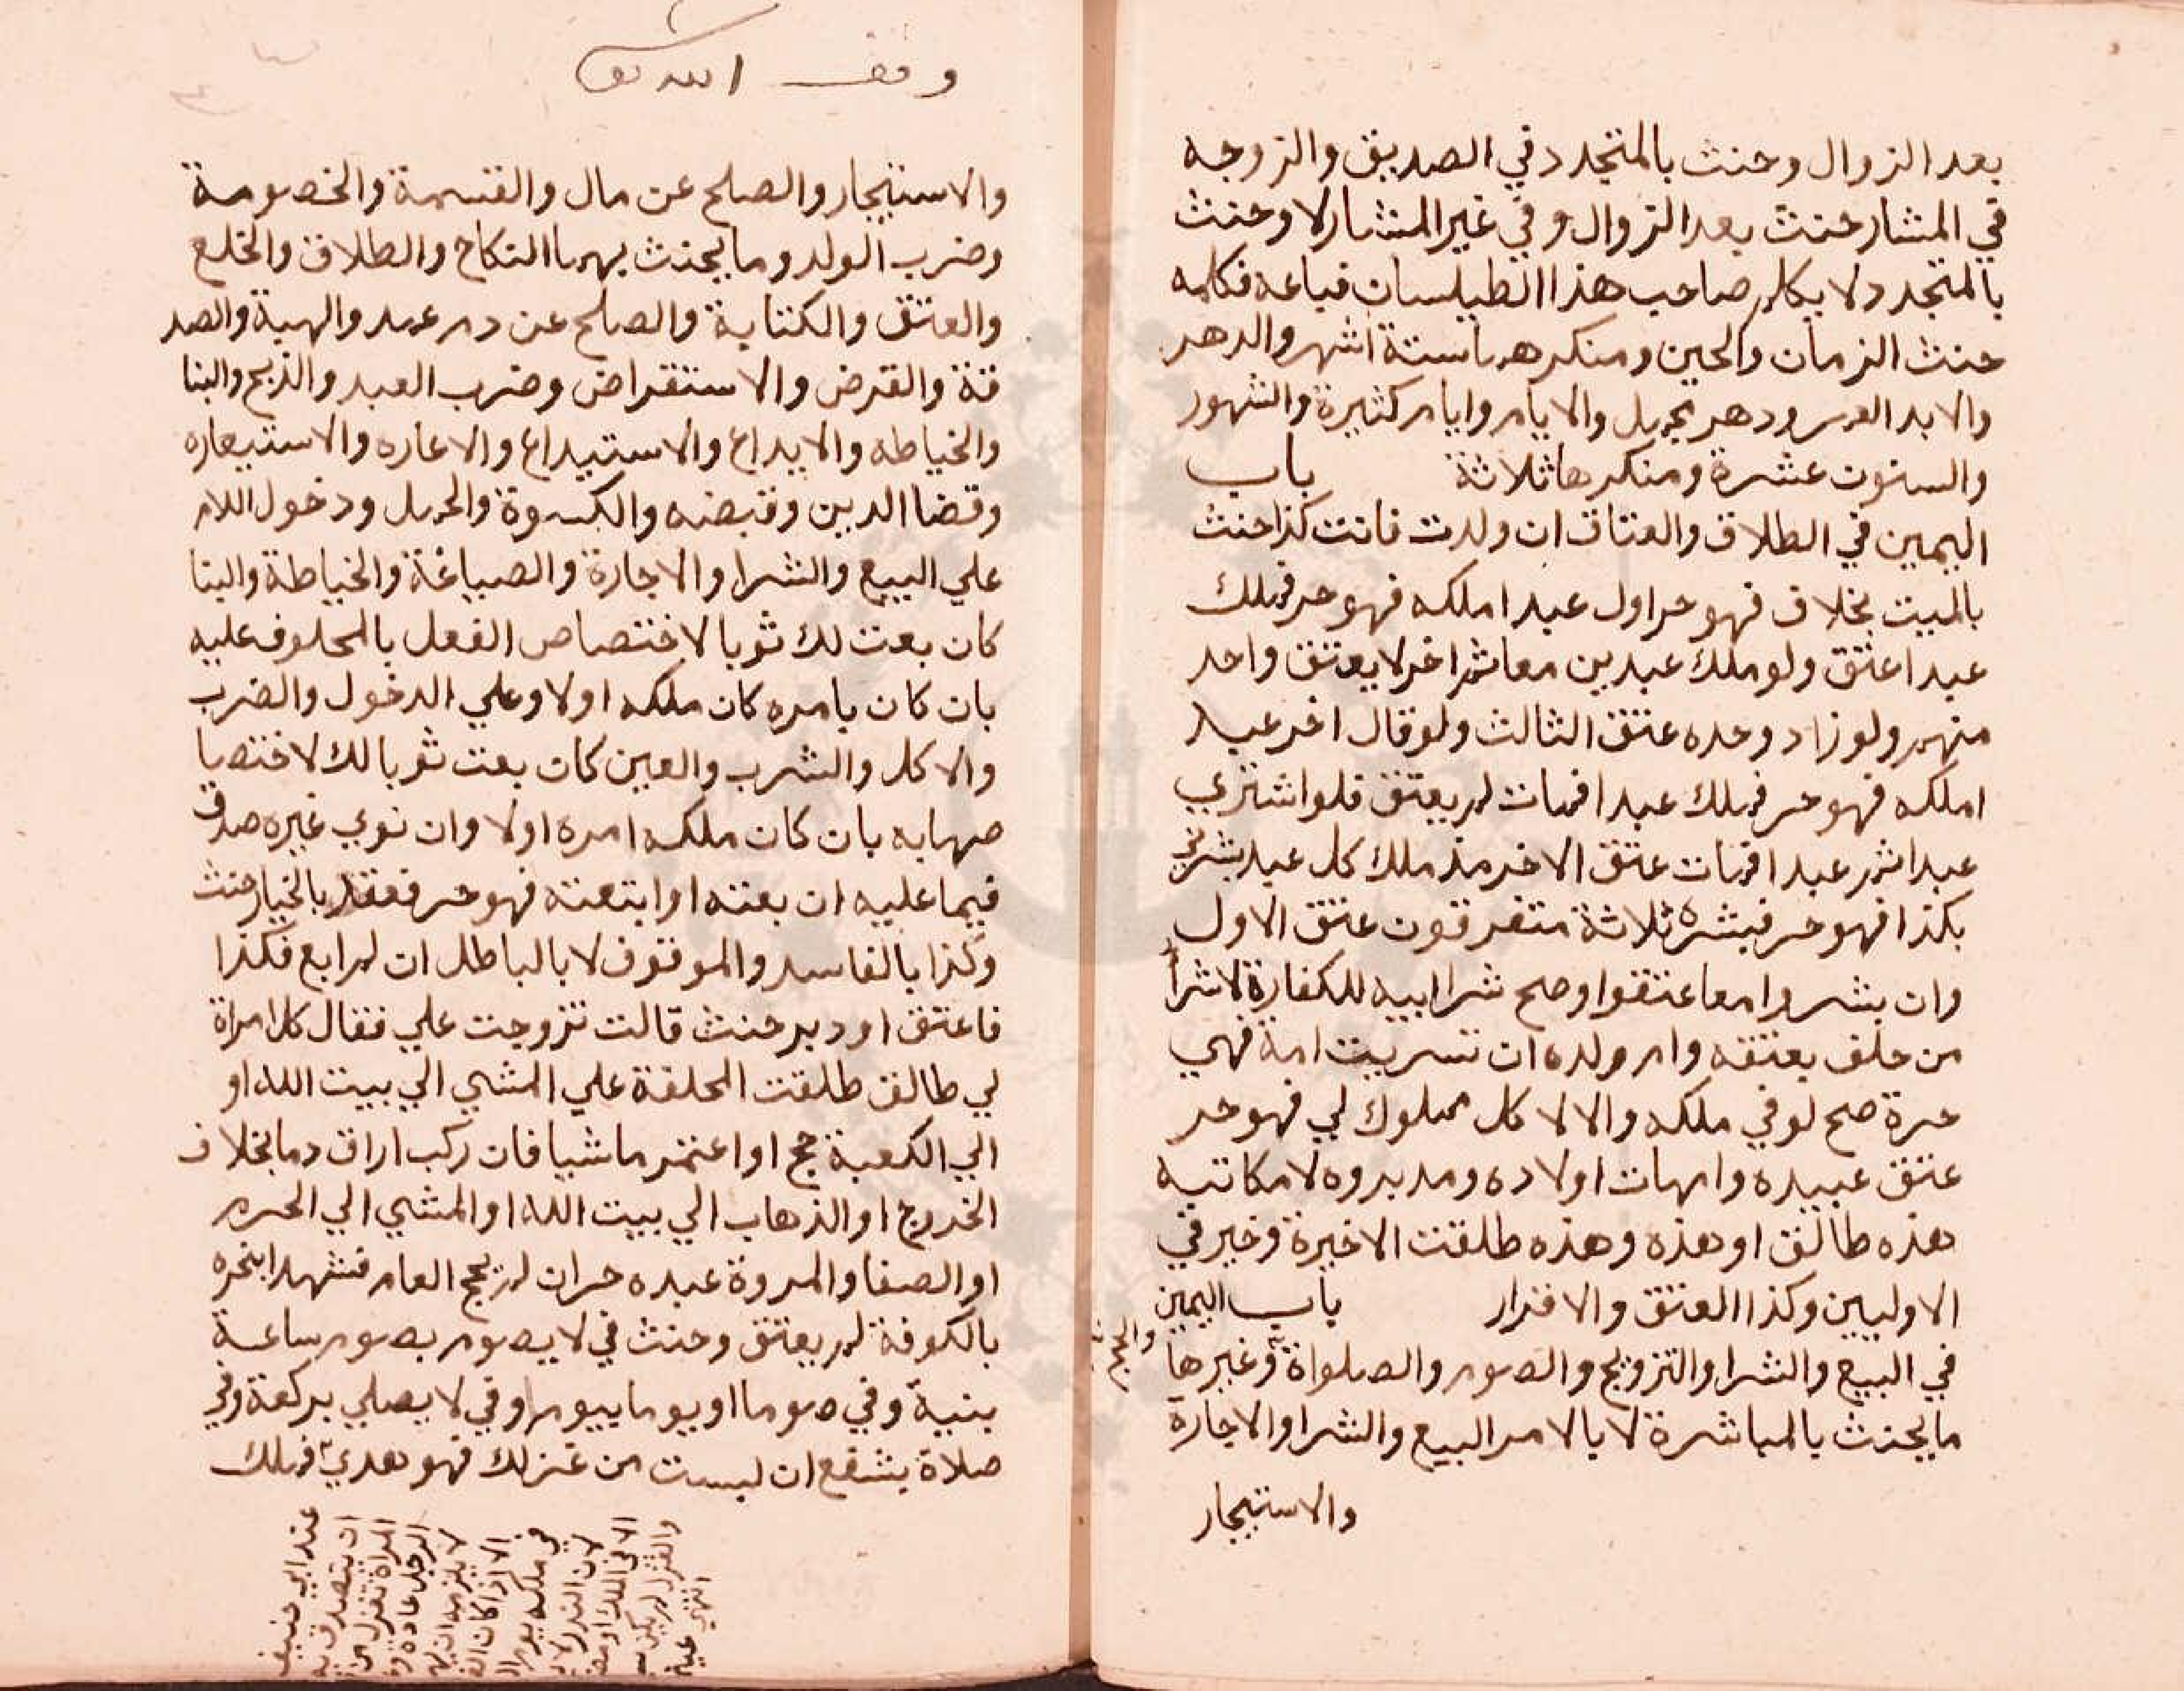 بعد الزوال وحنث بالمتجدد في الصديق والزوجه
في المشار حنث بعد الزوال وفي غير المشار لا وحنث
بالمتجدد لا يكلم صاحب هذا الطيلسان فباعه فكلمه
حنث الزمان والحين ومنكرهما ستة اشهر والدهر
والابد العمر ودهر مجمل والايام وايام كثيرة والشهور
والسنون عشرة ومنكرها ثلاثة باب
اليمين في الطلاق والعتاق ان ولدت فانت كذا حنث
بالميت بخلاف فهو حر اول عبد املكه فهو حر فملك
عبدا عتق ولو ملك عبدين معا ثم اخر لا يعتق واحد
منهم ولو زاد وحده عتق الثالث ولو قال اخر عبد
املكه فهو حر فملك عبدا فمات لم يعتق فلو اشتري
عبدا ثم عبدا فمات عتق الاخر مذ ملك كل عبد بشرني
بكذا فهو حر فبشره ثلاثة متفرقون عتق الاول
وان بشروا معا عتقوا وصح شرا ابيه للكفارة لا شرأ
من حلف بعتقه وام ولده ان تسريت امة فهي
حرة صح لو في ملكه والا لا كل مملوك لي فهو حر
عتق عبيده وامهات اولاده ومدبروه لا مكاتبه
هذه طالق او هذه وهذه طلقت الاخيرة وخير في
الاوليين وكذا العتق والاقرار باب اليمين
في البيع والشرا والتزويج والصوم والصلواة وغيرها
والحج
ما يحنث بالمباشرة لا بالامر البيع والشرا والاجارة
والاستيجار
وقف الله تعا
والاستيجار والصلح عن مال والقسمة والخصومة
وضرب الولد وما يحنث بهما النكاح والطلاق والخلع
والعتق والكتابة والصلح عن دم عمد والهبة والصد
قة والقرض والاستقراض وضرب العبد والذبح والبنا
والخياطه والايداع والاستيداع والاعاره والاستيعاره
وقضا الدين وقبضه والكسوة والحمل ودخول اللام
علي البيع والشرا والاجارة والصياغة والخياطة والبنا
كان بعت لك ثوبا لاختصاص الفعل بالمحلوف عليه
بان كان بامره كان ملكه اولا وعلي الدخول والضرب
والاكل والشرب والعين كان بعت ثوبا لك لاختصا
صها به بان كان ملكه امره اولا وان نوي غيره صدق
فيما عليه ان بعته او ابتعته فهو حر فعقد بالخيار حنث
وكذا بالفاسد والموقوف لا بالباطل ان لم ابع فكذا
فاعتق او دبر حنث قالت تزوجت علي فقال كل امراة
لي طالق طلقت المحلفة علي المشي الي بيت الله او
الي الكعبة حج او اعتمر ماشيا فان ركب اراق دما بخلاف
الخروج او الذهاب الي بيت الله او المشي الي الحرم
او الصفا والمروة عبده حر ان لم يحج العام فشهدا بنحره
بالكوفة لم يعتق وحنث في لا يصوم بصوم ساعة
بنية وفي صوما او يوما بيوم وفي لا يصلي بركعة وفي
صلاة بشفع ان لبست من غزلك فهو هدي فملك
عند ابي حنيفة
ان يتصدق به
المراة تغزل من
الرجل عادة
لا يلزمه ان
الا اذا كان
في ملكه يوم
لان النذر لا
الا في الملك او
والغزل لم يكن
انتهي